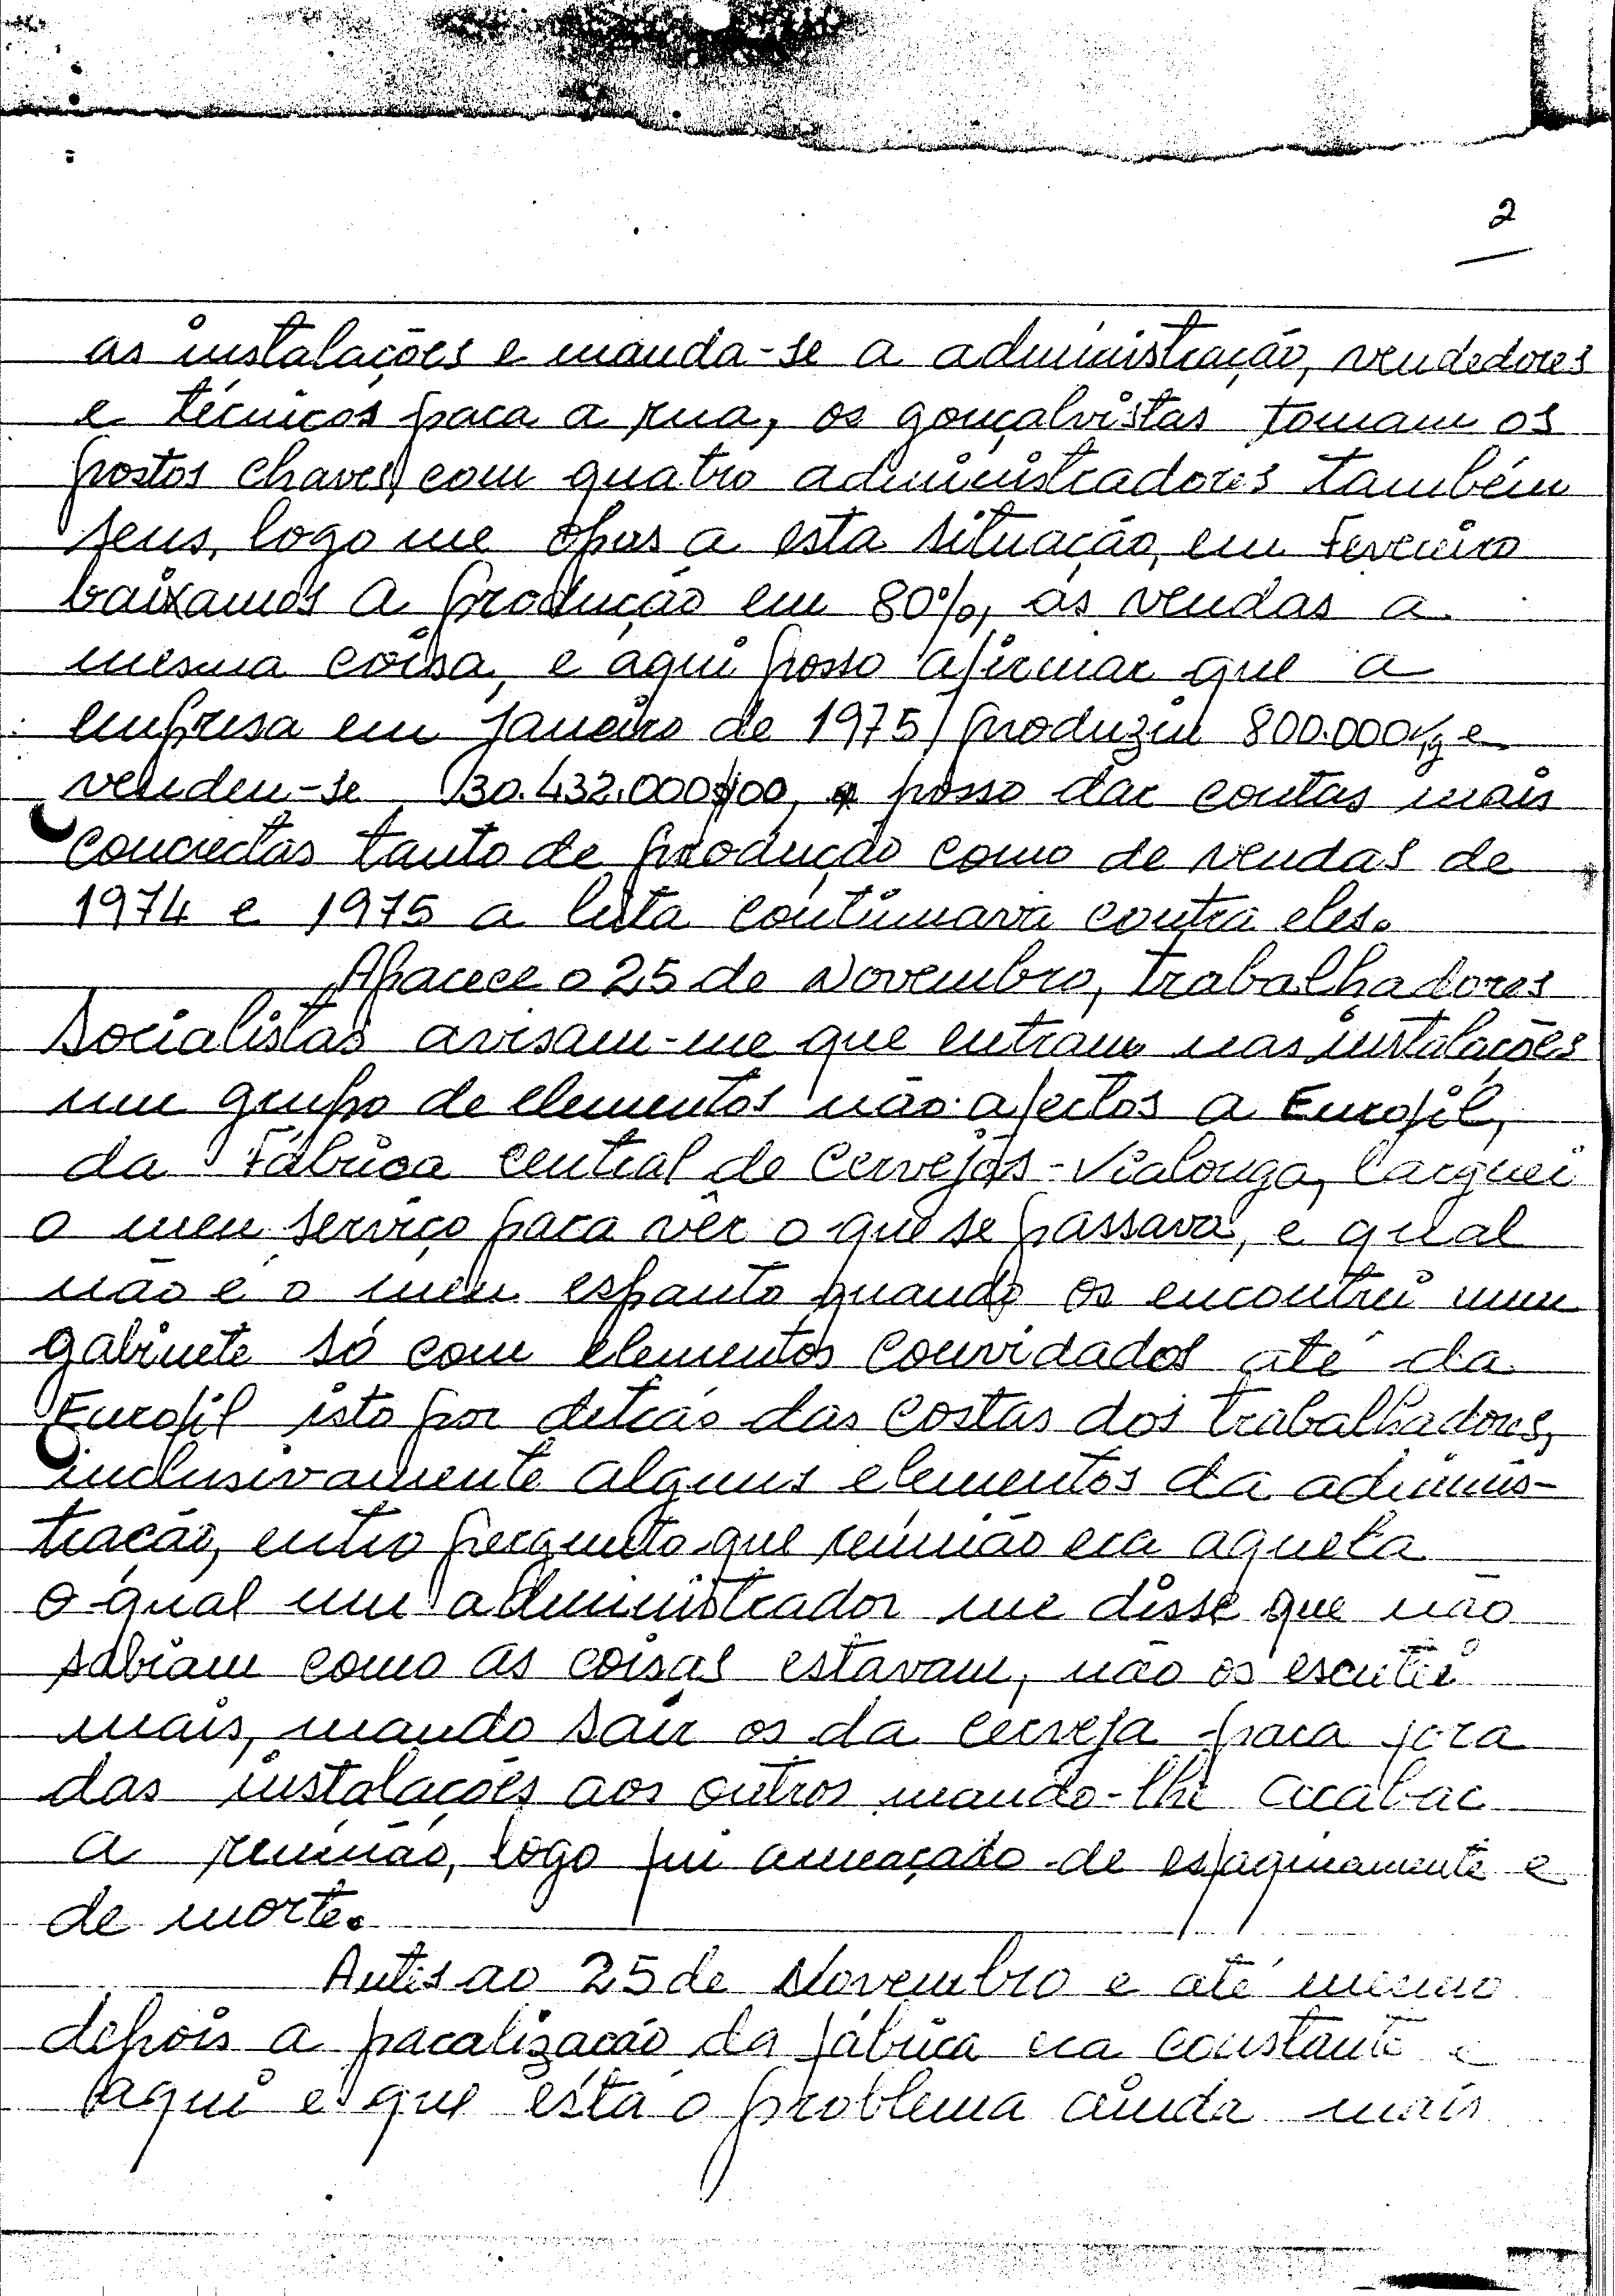 2
as instalações e manda-se a administração, vendedores
e técnicos para a rua, os gonçalvistas tomam os
postos chaves, com quatro administradores também
seus, logo me opus a esta situação, em Fevereiro
baixamos a produção em 80%, as vendas a
mesma coisa, e aqui posso afirmar que a
empresa em Janeiro de 1975, produziu 800.000Kg e
vendeu-se 130.432.000$00, e posso dar contas mais
concretas tanto de produção como de vendas de
1974 e 1975 a luta continuava contra eles.
Aparece o 25 de Novembro, trabalhadores
socialistas avisam-me que entram nas instalações
um grupo de elementos não afectos a Eurofil,
da Fábrica Central de Cervejas-Vialonga, larguei
o meu serviço para vêr o que se passava, e qual
não é o meu espanto quando os encontrei num
gabinete só com elementos convidados até da
Eurofil isto por detrás das costas dos trabalhadores,
inclusivamente alguns elementos da adminis-
tração, entro pergunto que reunião era aquela
o qual um administrador me disse que não
sabiam como as coisas estavam, não os escutei
mais, mando sair os da cerveja para fora
das instalações aos outros mando-lhe acabar
a reunião, logo fui ameaçado de esfaqueamente e
de morte.
Antes ao 25 de Novembro e até mesmo
depois a paralização da fábrica era constante e
aqui é que está o problema ainda mais